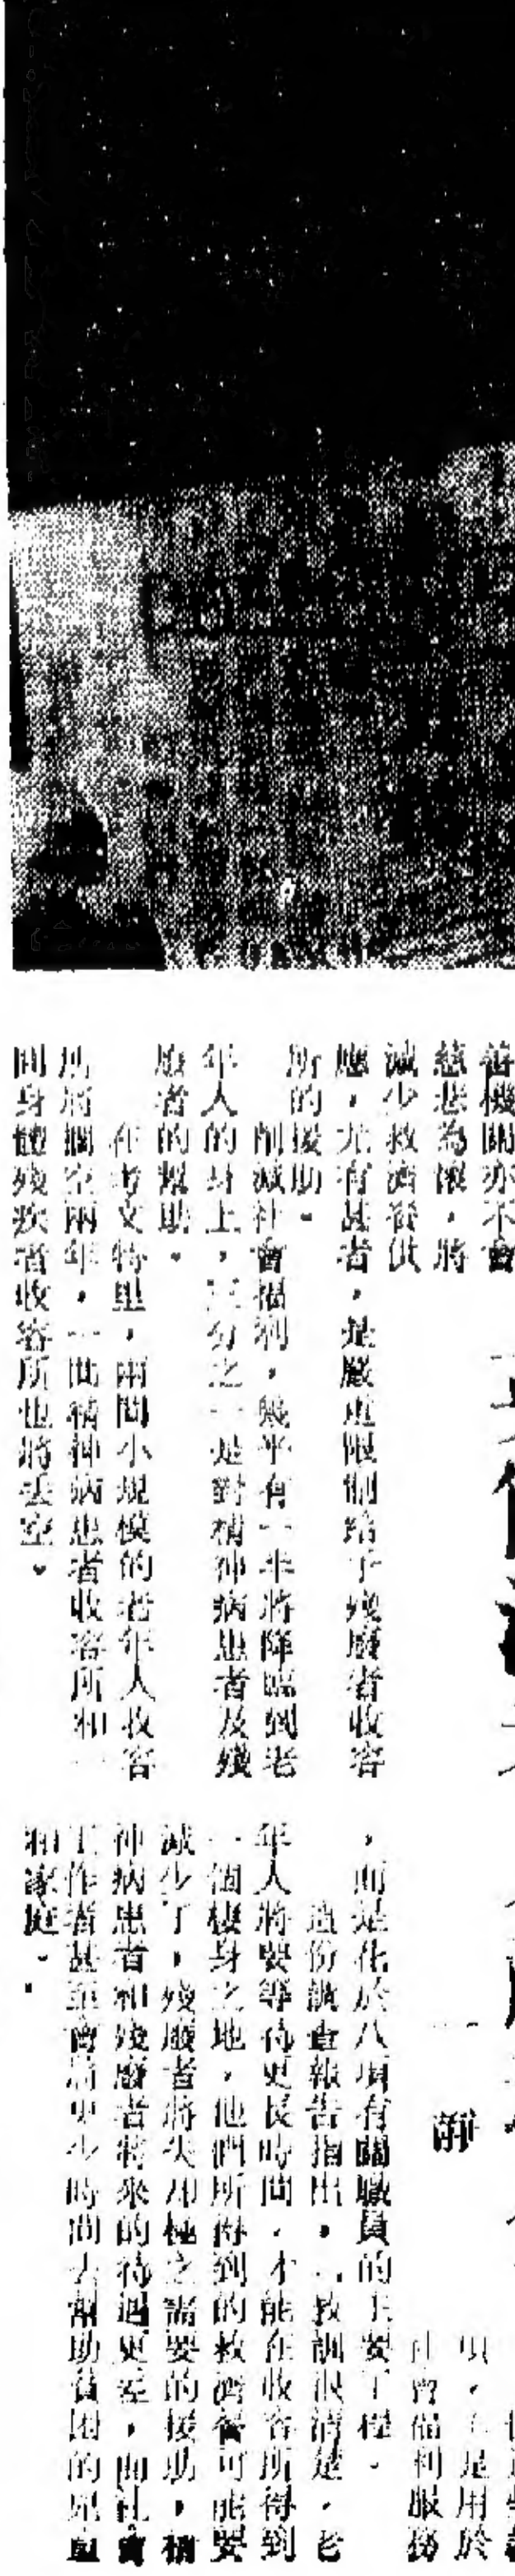 善機關亦不會
慈悲為懷，將
減少救濟餐供
應，尤有甚者，是嚴重限制給予殘廢者收容
所的援助。
削減社會福利，幾乎有一半將降臨到老
年人的身上，三分之一是對精神病患者及殘
廢者的幫助。
在考文特里，兩間小規模的老年人收容
所將擱空兩年，一間精神病患者收容所和一
間身體殘疾者收容所也將丟空。
項，
是用於
社會福利服務
，而是化於八項有關職員的主要工程。
這份調查報告指出，「教訓很清楚，老
年人將要等待更長時間，才能在收容所得到
一個棲身之地，他們所得到的救濟餐可能要
減少了，殘廢者將失却極之需要的援助，精
神病患者和殘廢者將來的待遇更差，而社會
工作者甚至會將更少時間去幫助貧困的兒童
和家庭。」